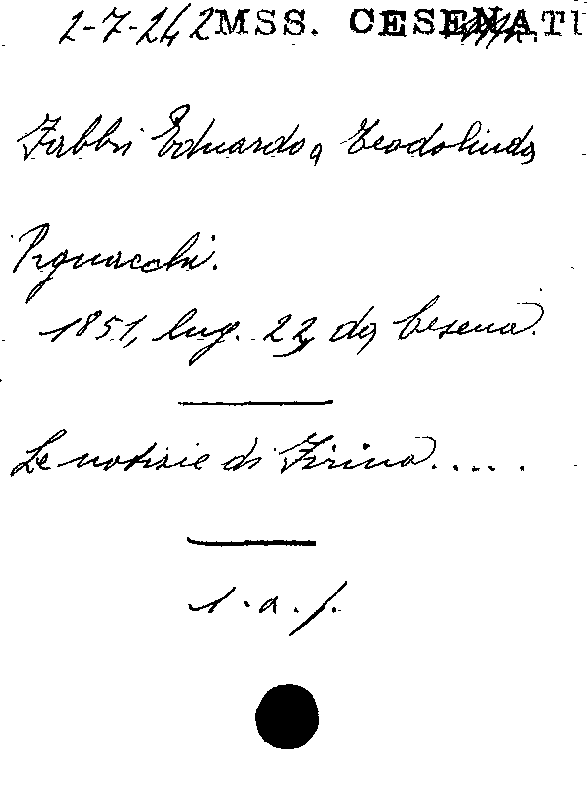 2-7-242 MSS. CESENATI
Fabbri Eduardo a Teodolinda
Pignacchi.
1851, lug. 22, da Cesena.
Le notizie di Firina.....
1. a. f.